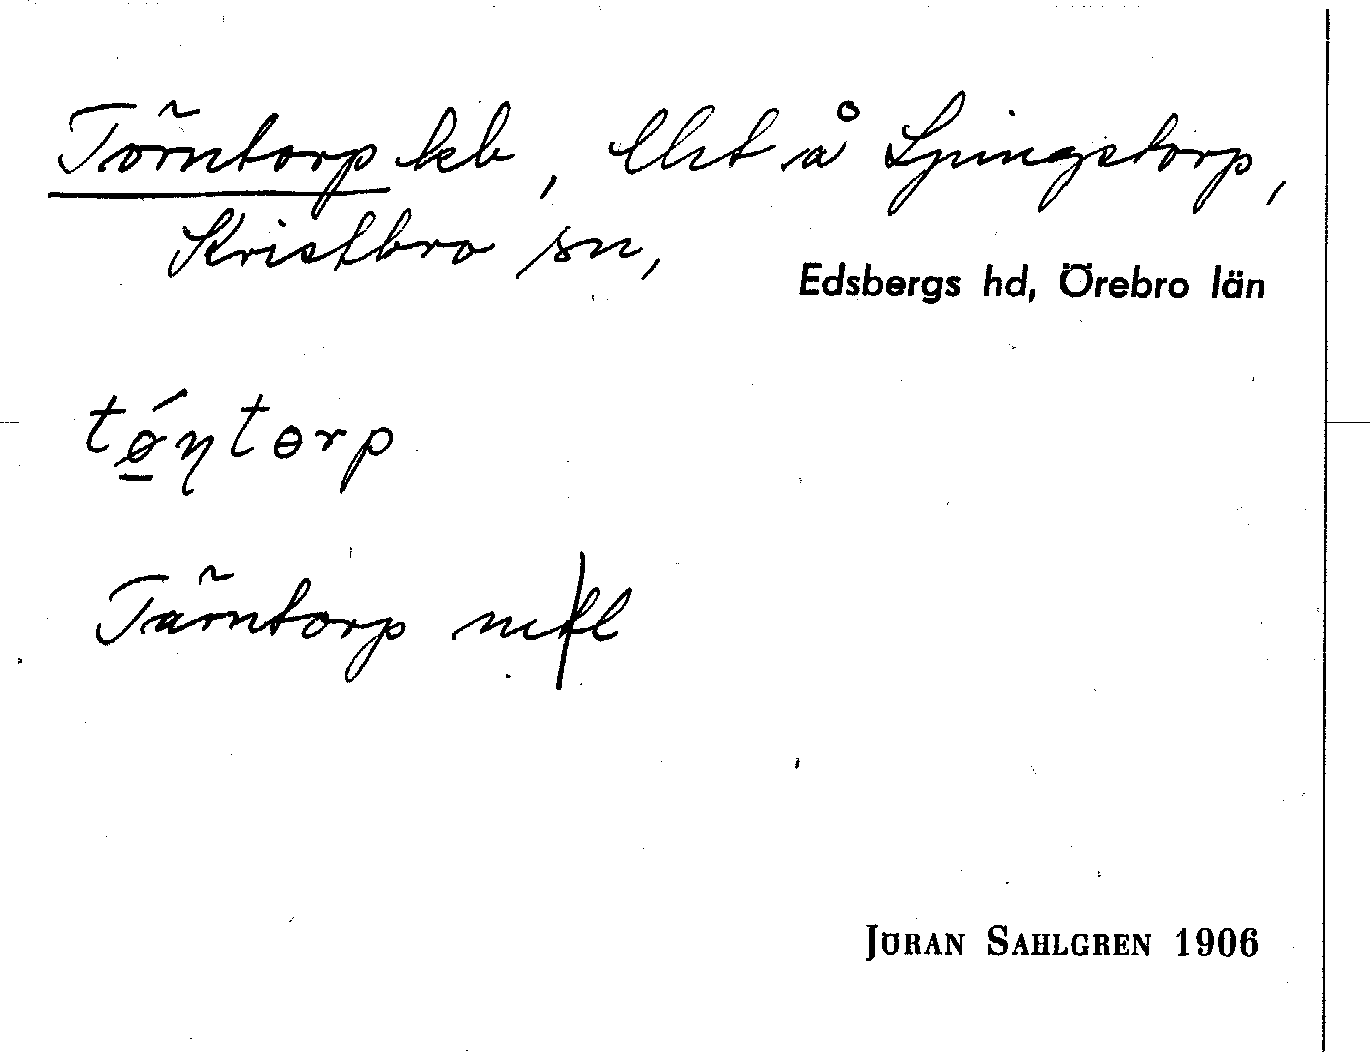 Törntorp lhb, lht å Ljungstorp,
Kristbro sn,
Edsbergs hd, Örebro län
tǿntorp
Tärntorp mfl
JÖRAN SAHLGREN 1906